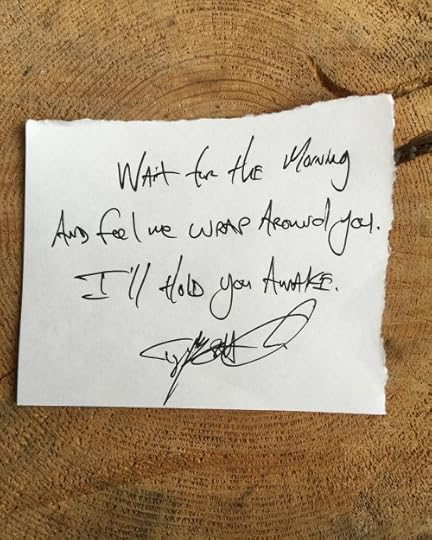 WAit for tHE Morning
AND feel me WRAP AROUND you.
I'll HOLD you AWAKE.